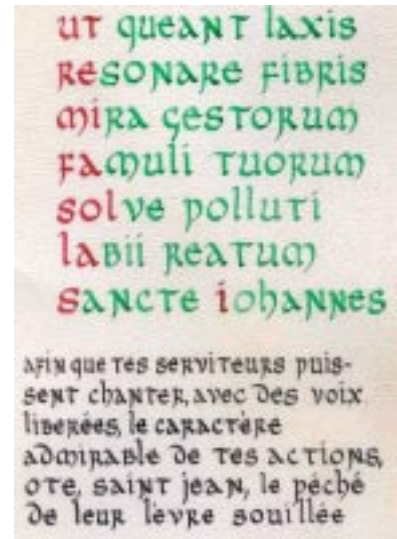 ut queant laxis
Resonare fibris
mira gestorum
famuli tuorum
solve polluti
labii reatum
Sancte iohannes
afin que tes serviteurs puis-
sent chanter, avec des voix
liberées, le caractère
admirable de tes actions,
ote, saint jean, le péché
de leur lèvre souillée